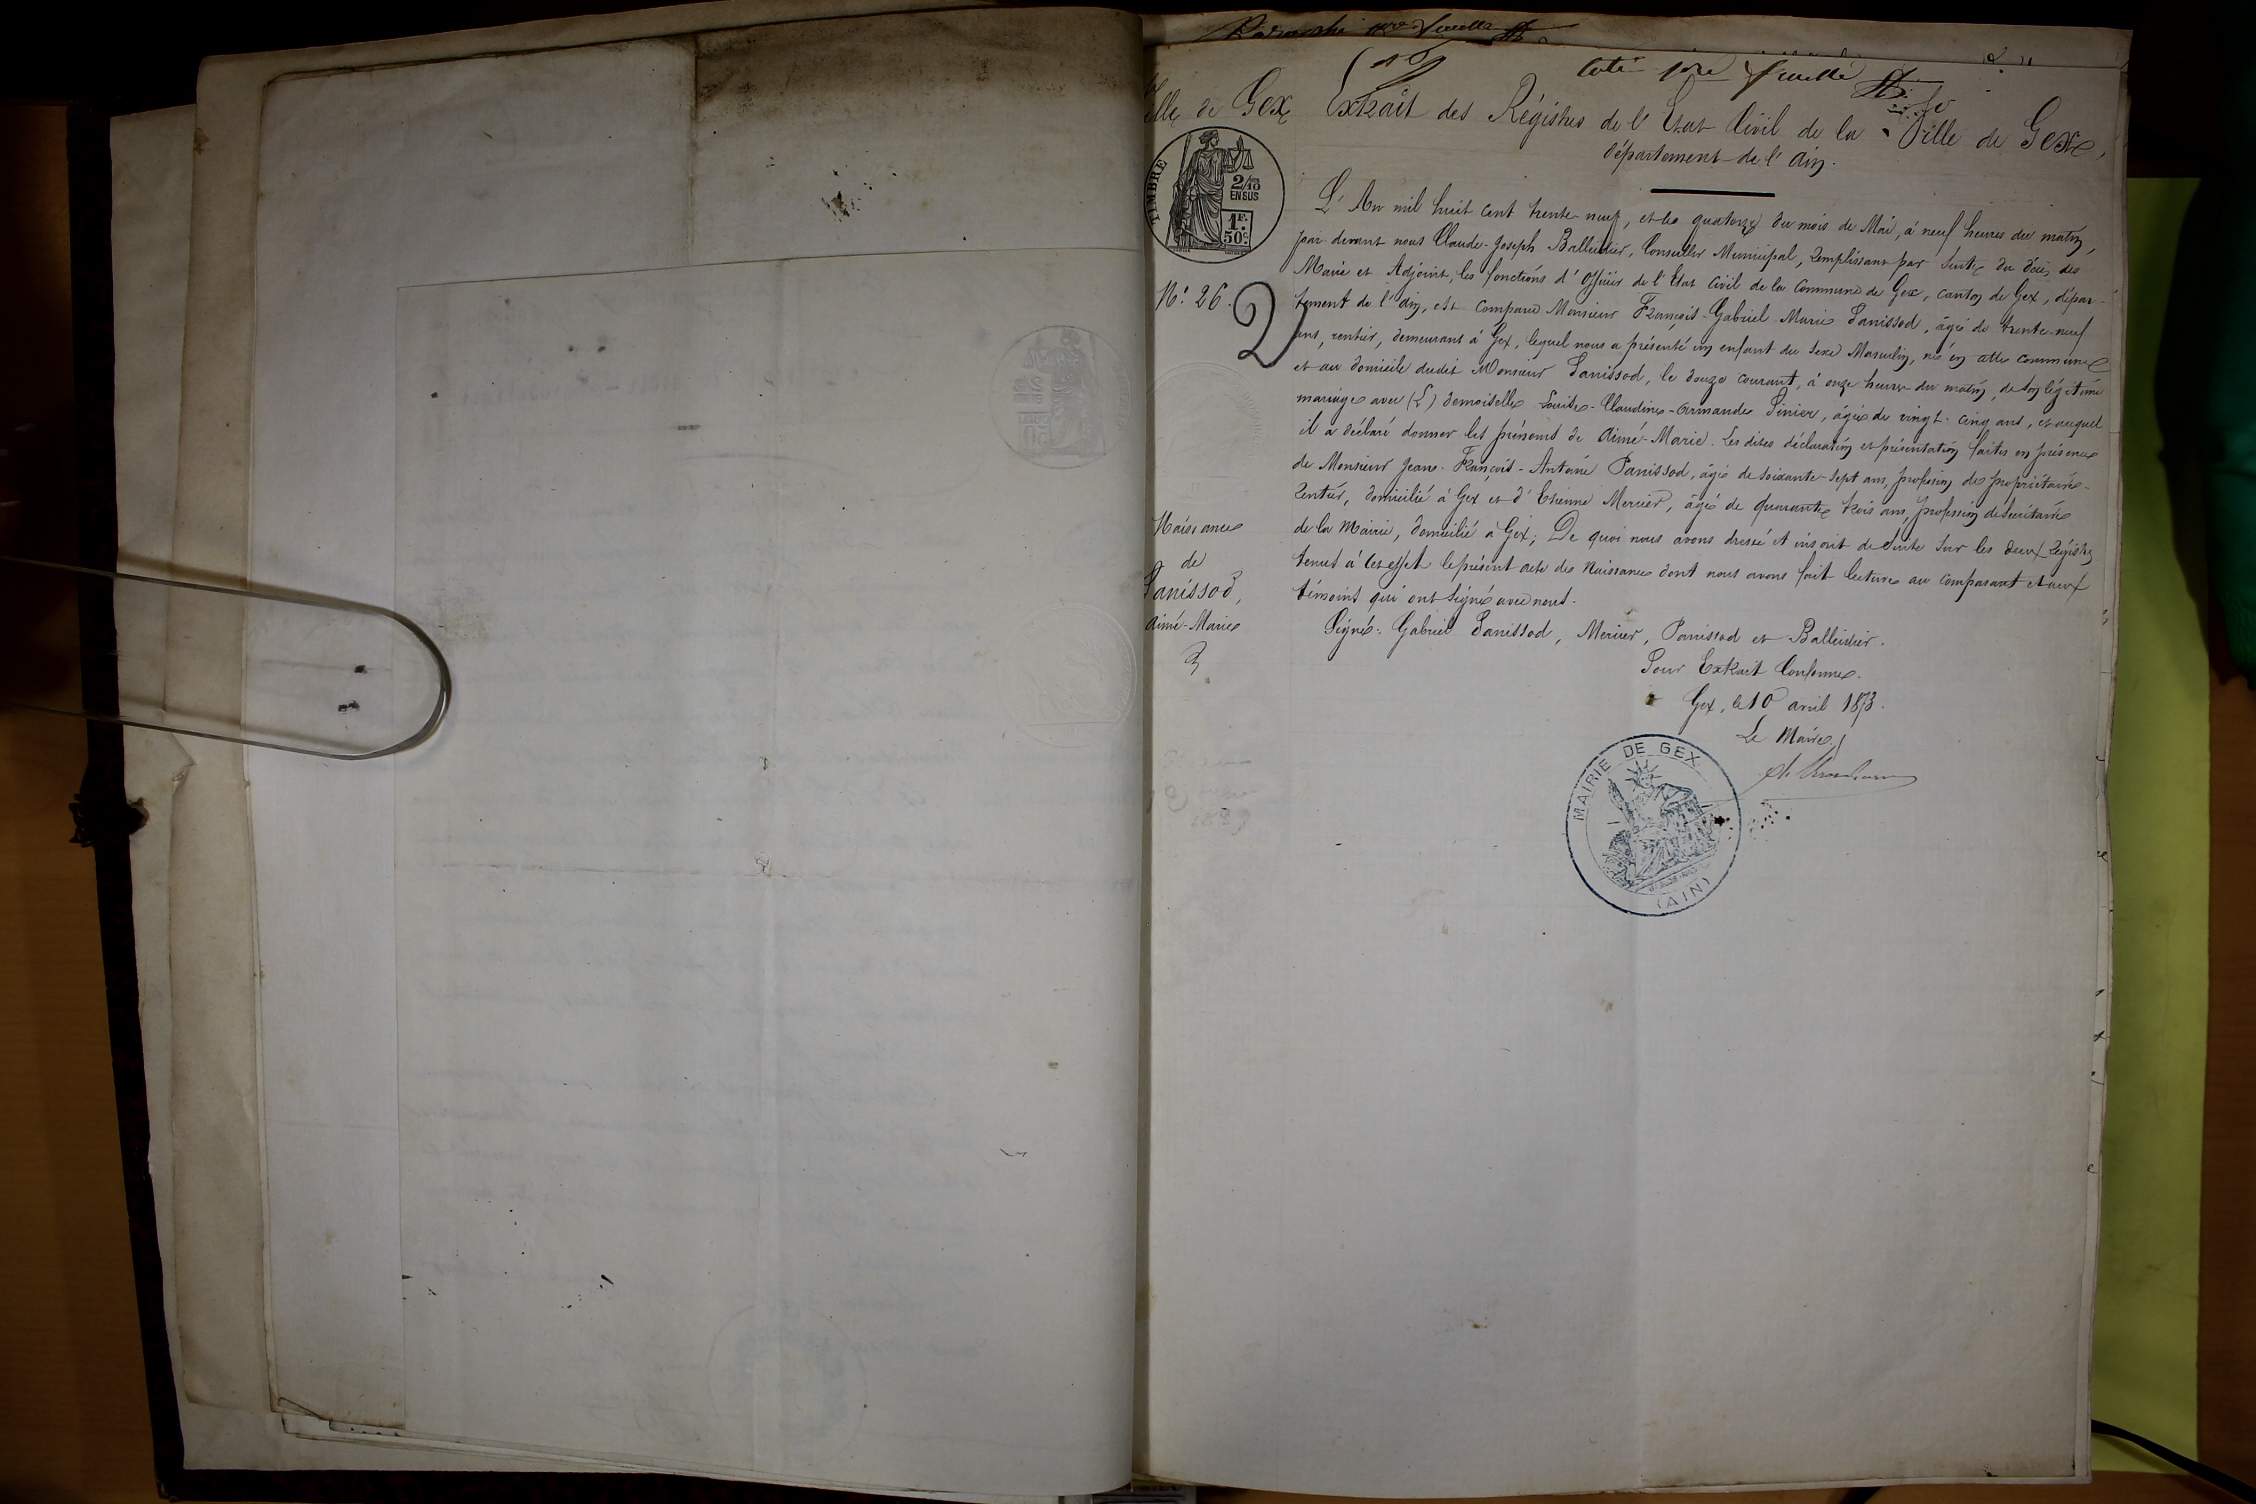 Paraphé
coté 1ère feuille
Ville de Gex
Extrait des Régistres de l'Etat Civil de la Ville de Gex,
département de l'Ain.
TIMBRE
2/10
EN SUS
1F.
50c.
L'An mil huit cent trente-neuf, et le quatorze du mois de Mai, à neuf heures du matin,
par-devant nous Claude-Joseph Balleidier, Conseiller Municipal, remplissant par suite du décès des
Maire et Adjoint, les fonctions d'Officier de l'Etat Civil de la Commune de Gex, canton de Gex, dépar-
N.º 26.
tement de l'Ain, est comparu Monsieur François-Gabriel-Marie Panissod, âgé de trente-neuf
ans, rentier, demeurant à Gex, lequel nous a présenté un enfant du sexe Masculin, né en cette commune
et au domicile dudit Monsieur Panissod, le douze courant, à onze heures du matin, de son légitime
mariage avec (L) demoiselle Louise-Claudine-Armande Pinier, âgée de vingt-cinq ans, et auquel
il a déclaré donner les prénoms de Aimé-Marie. Les dites déclaration et présentation faites en présence
de Monsieur Jean-François-Antoine Panissod, âgé de soixante-sept ans, profession de propriétaire-
rentier, domicilié à Gex et d'Etienne Mercier, âgé de quarante trois ans, profession de Secrétaire
de la Mairie, domicilié à Gex; De quoi nous avons dressé et inscrit de suite sur les deux Régistres
tenus à cet effet le présent acte de Naissance dont nous avons fait lecture au comparant et aux
témoins qui ont signé avec nous.
Naissance
de
Panissod,
Aimé-Marie
Signé: Gabriel Panissod, Mercier, Panissod et Balleidier.
Pour Extrait Conforme.
Gex, le 10 avril 1873.
Le Maire,
MAIRIE DE GEX
(AIN)